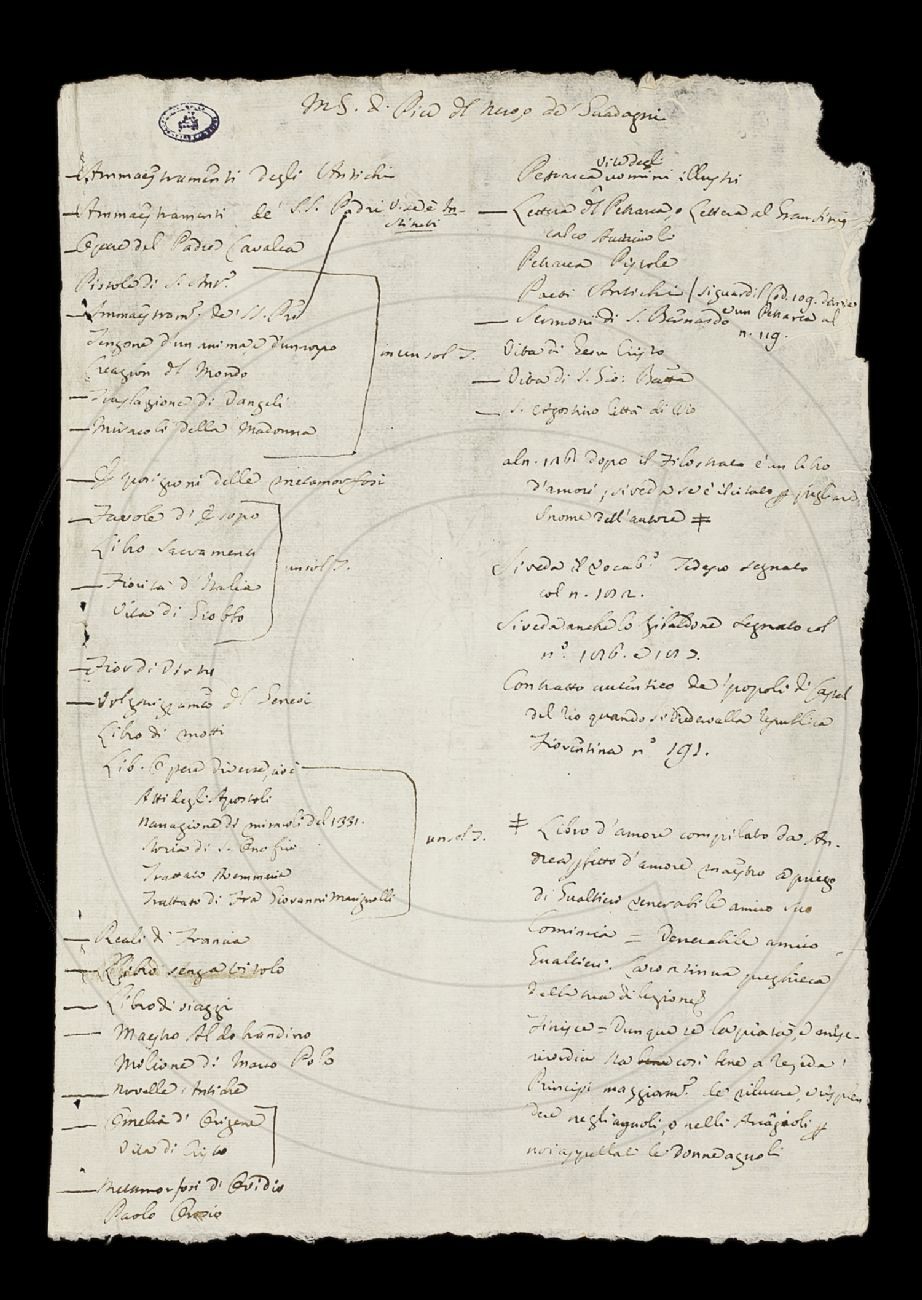 MS. di Pier del Nero de' Guadagni
Ammaestramenti degli Antichi
Ammaestramenti de' S.S. Padri Vedi è In-
Opere del Padre Cavalca
Pistole di S.
Ammaestram. de' SS. Pri
Tenzone d'un'anima, e d'un corpo
Creazion del Mondo
Traslazione di
Miracoli della Madonna
in un vol. 7.
Esposizioni delle metamorfosi
Favole d'Esopo
Libro Sacramenti
Fiorità d'Italia
Vita di Giobbo
un vol. 7.
Fior di Virtù
Volgarizzamto del Seneca
Libro di motti
Lib. Opere diverse, cioè
Atti degli Apostoli
narrazione di miracoli del 1331.
Storia di S. Onofrio
Trattato
Trattato di Fra Giovanni Marignolli
un vol. 7.
Reali di Francia
Libro senza titolo
Libro di viaggi
Maestro Aldobrandino
Milione di Marco Polo
Novelle Antiche
Omelia d'Origene
Vita di Cristo
Metamorfosi di Ovidio
Paolo Orosio
vite degli
Petrarca uomini illustri
Lettera del Petrarca, o Lettera al Gran Sinis
calco Acciaiuolo
Petrarca Pistole
Poeti Antichi / si guardi il Cod. 109. dov'è
Sermoni di S. Bernardo un Petrarca al
n. 119.
Vita di Gesu Cristo
Vita di S. Gio: Batta
S. Agostino Città di Dio
al n. dopo il Filostrato è un libro
d'amori, si veda se è il citato
nome dell'autore ‡
Si veda il Vocabo. Tedesco segnato
col n.
Si veda anche lo Zibaldone segnato col
n.o
Contratto autentico de' popoli di
del Rio quando si diedero alla Repubblica
Fiorentina n.o 191.
‡ Libro d'amore compilato da An-
drea, fatto d'amore maestro a priego
di Gualtieri venerabile amico suo
Comincia = Venerabile amico
Gualtieri. La continua preghiera
della tua dilezione
Finisce = Dunque se la pietà, e mise-
ricordia sta così bene a Re, ed a'
Principi maggiam.te le riluce, e risplen
de negli agnoli, o nelli Arcagnoli
noi appellati le donne agnoli